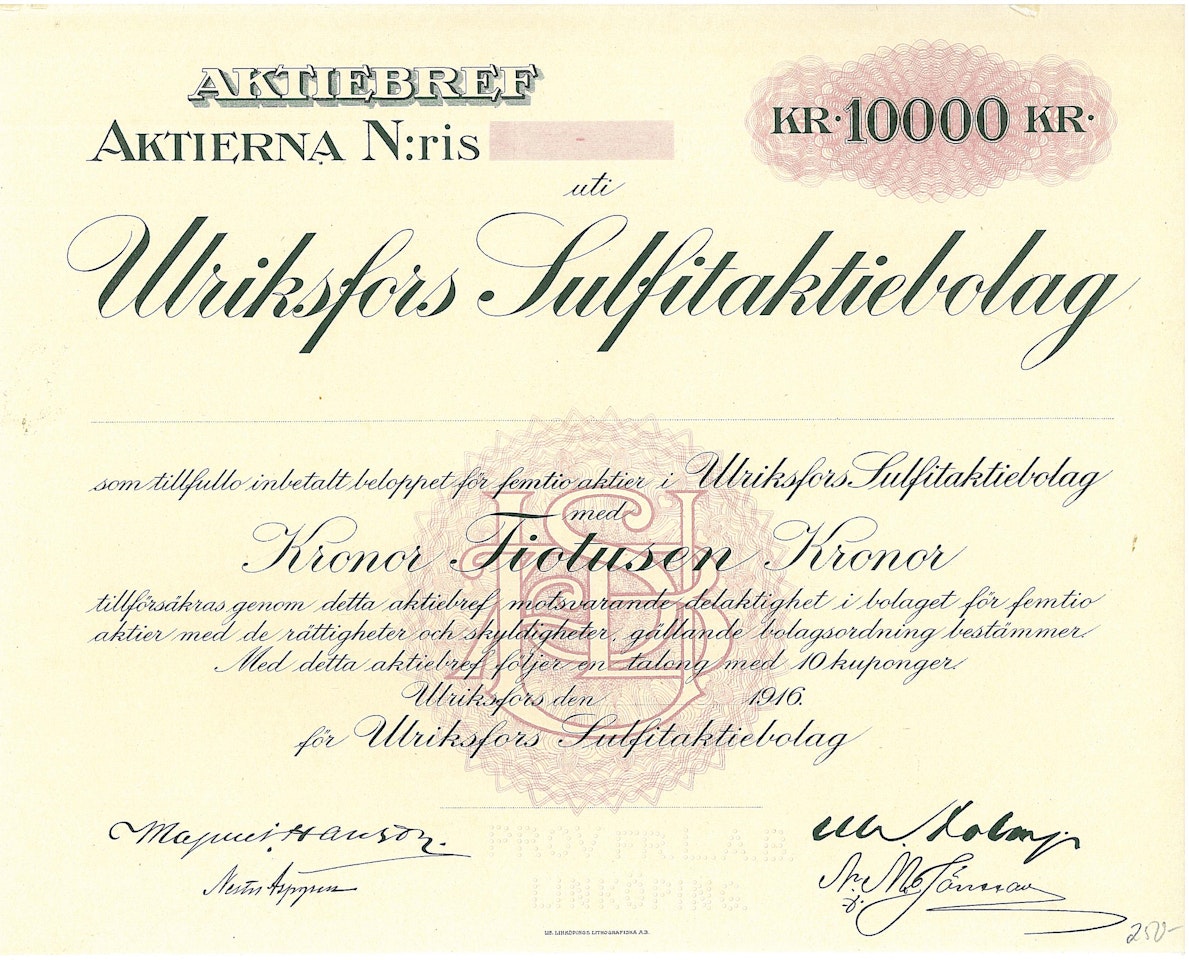 AKTIEBREF
KR·10000 KR·
AKTIERNA N:ris -
uti
Ulriksfors Sulfitaktiebolag
som tillfullo inbetalt beloppet för femtio aktier i Ulriksfors Sulfitaktiebolag
med
Kronor Tiotusen Kronor
tillförsäkras genom detta aktiebref motsvarande delaktighet i bolaget för femtio
aktier med de rättigheter och skyldigheter, gällande bolagsordning bestämmer.
Med detta aktiebref följer en talong med 10 kuponger.
Ulriksfors den 1916.
för Ulriksfors Sulfitaktiebolag
Magnus Hanson.
PROVTR. L.A.B.
LINKÖPING
LIB. LINKÖPINGS LITHOGRAFISKA A.B.
250-